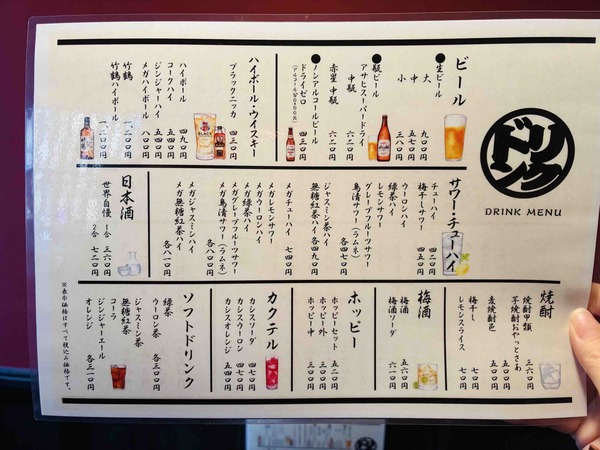 ドリンク
DRINK MENU
ビール
●生ビール
大 九〇〇円
中 五七〇円
小 三八〇円
●瓶ビール
アサヒスーパードライ
中瓶 六二〇円
赤星 中瓶 六二〇円
●ノンアルコールビール
ドライゼロ 四三〇円
ハイボール・ウイスキー
ブラックニッカ 四三〇円
ハイボール 四九〇円
コークハイ 五四〇円
ジンジャーハイ 五四〇円
メガハイボール 八〇〇円
竹鶴
竹鶴ハイボール
サワー・チューハイ
チューハイ 四二〇円
梅干しサワー 四五〇円
ウーロンハイ
緑茶ハイ
レモンサワー
グレープフルーツサワー
島清サワー(ラムネ) 各四七〇円
ジャスミン茶ハイ
無糖紅茶ハイ 各四九〇円
メガチューハイ 七四〇円
メガレモンサワー
メガウーロンハイ
メガ緑茶ハイ
メガグレープフルーツサワー
メガ島清サワー(ラムネ) 各八〇〇円
メガジャスミンハイ
メガ無糖紅茶ハイ 各八一〇円
日本酒
世界自慢 1合 三六〇円
2合 七二〇円
焼酎
焼酎甲類 三六〇円
芋焼酎おやっとさぁ 五〇〇円
麦焼酎 五〇〇円
梅干し 七〇円
レモンスライス 七〇円
梅酒
梅酒 五六〇円
梅酒ソーダ 六一〇円
ホッピー
ホッピーセット 五二〇円
ホッピー外 三〇〇円
ホッピー中 三〇〇円
カクテル
カシスソーダ 四七〇円
カシスウーロン 四七〇円
カシスオレンジ 五四〇円
ソフトドリンク
緑茶
ウーロン茶 各三〇〇円
ジャスミン茶
無糖紅茶
コーラ
ジンジャーエール
オレンジ 各三一〇円
※表示価格はすべて税込み価格です。